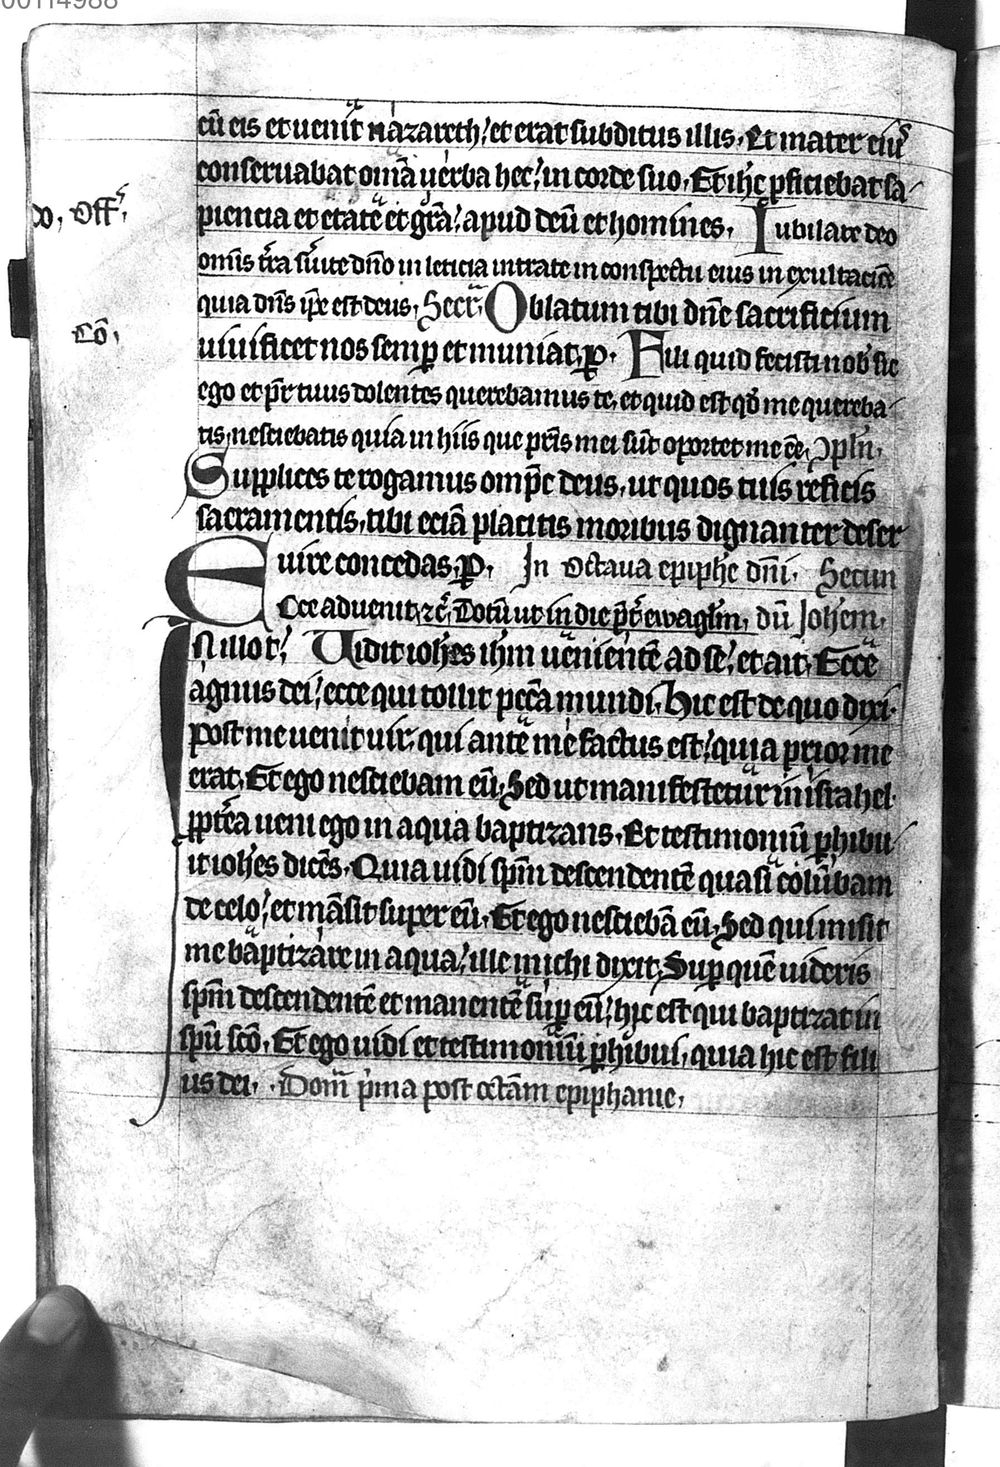 00114988
cū eis et uenit nazareth, et erat subditus illis. Et mater eiꝰ
conseruabat omīa uerba hec, in corde suo. Et ihc̄ ꝓficiebat sa
do, Off̄,
piencia et etate et gr̄a, apud deū et homines. Iubilate deo
om̄is t̄ra s̄uite dn̄o in leticia intrate in conspectu eius in exultacōe
quia dn̄s ip̄e est deus, Secr̄. Oblatum tibi dn̄e sacrificium
Cō,
uiuificet nos semꝑ et muniat, ꝑ. Fili quid fecisti nob̄ sic
ego et pr̄ tuus dolentes querebamus te, et quid est qd̄ me quereba
tis, nesciebatis quia in hiis que pr̄is mei sūt oportet me ēe, ꝯpln̄,
Supplices te rogamus omp̄c deus, ut quos tuis reficis
sacramentis, tibi eciā placitis moribus dignanter deser
uire concedas, ꝑ. In Octaua epiphe dn̄i. Secun
Ecce aduenit, ⁊c̄, Totū ut in die p̄t̄ ewagl̄m, dū Johem,
In illo t̄, Uidit ioh̄es ih̄m uenientē ad se, et ait, Ecce
agnus dei, ecce qui tollit pcc̄a mundi, Hic est de quo dixi.
post me uenit uir, qui ante me factus est, quia prior me
erat, Et ego nesciebam eū, Sed ut manifestetur in israhel.
ꝓpt̄ea ueni ego in aqua baptizans, Et testimoniū ꝑhibu
it ioh̄es dicēs, Quia uidi sp̄m descendentē quasi columbam
de celo, et māsit super eū, Et ego nesciebā eū, Sed qui misit
me baptizare in aqua, ille michi dixit, Suꝑ quē uideris
sp̄m descendentē et manentē suꝑ eū, hic est qui baptizat in
spū scō, Et ego uidi et testimoniū ꝑhibui, quia hic est fili
us dei, . Dom̄ p̄ma post octām epiphanie,